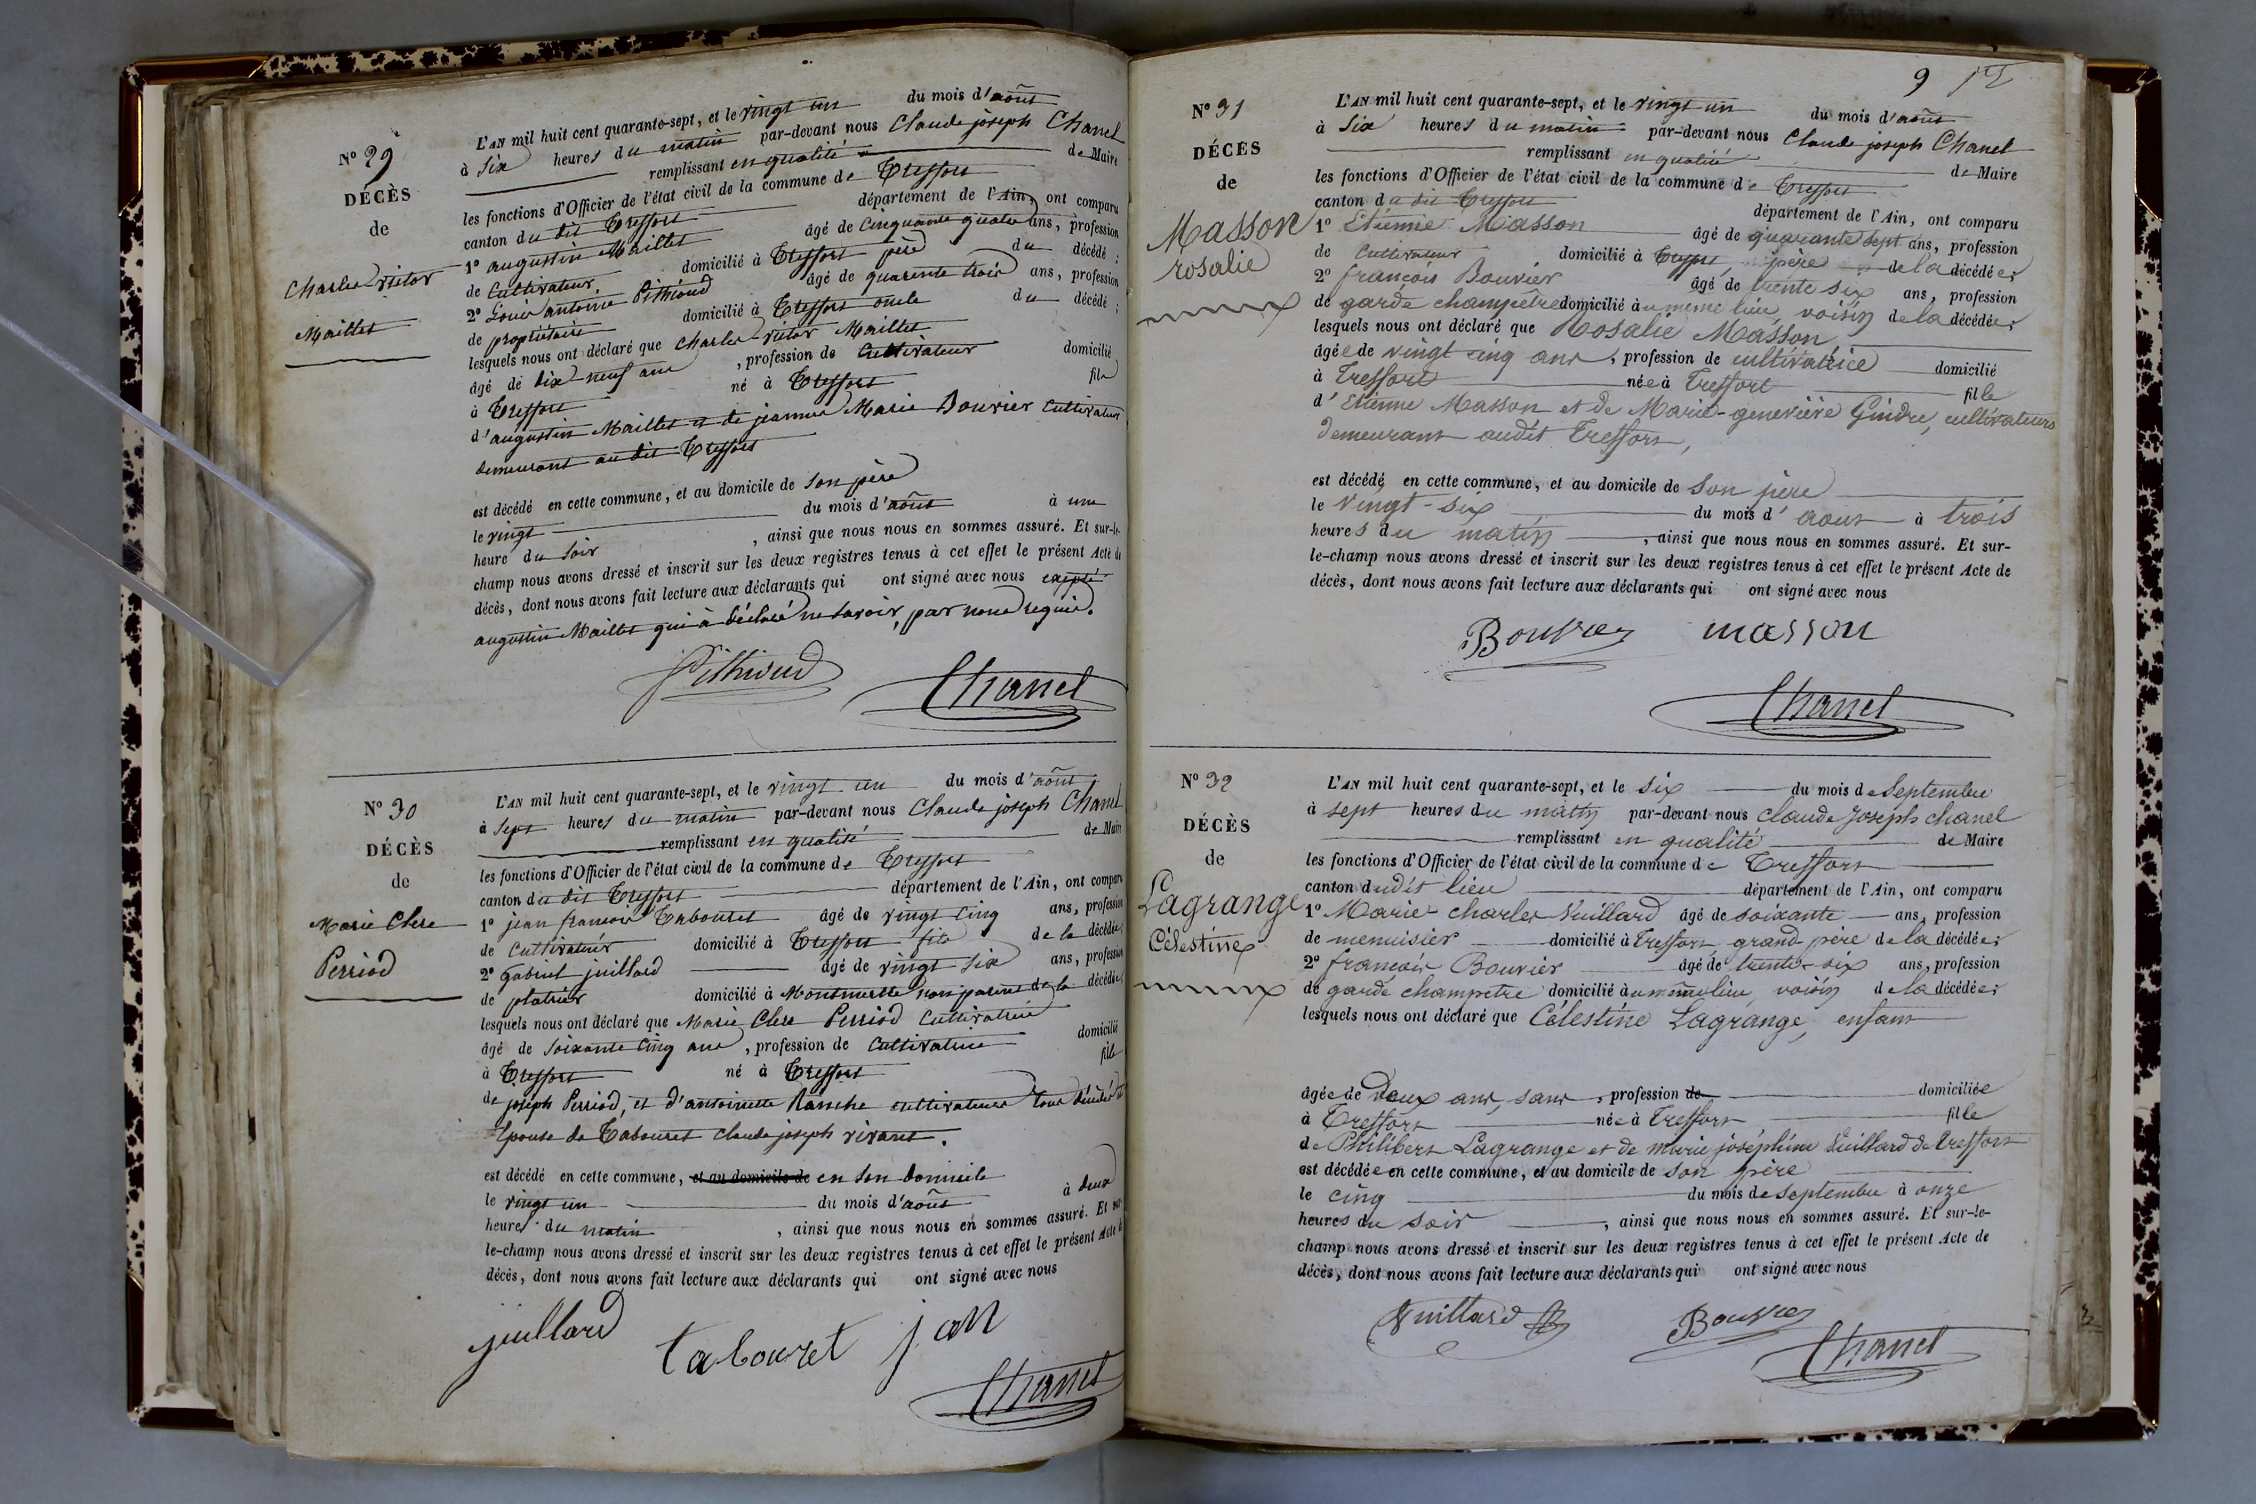 N° 29
DÉCÈS
de
Charles victor
Maillet
L'AN mil huit cent quarante-sept, et le vingt un du mois d'août
à six heures du matin par-devant nous Claude joseph Chanel
remplissant en qualité de Maire
les fonctions d'Officier de l'état civil de la commune de Treffort
canton du dit Treffort département de l'Ain, ont comparu
1° augustin Maillet âgé de cinquante quatre ans, profession
de cultivateur, domicilié à Treffort père du décédé ;
2° Louis antoine Pithioud âgé de quarente trois ans, profession
de propriétaire domicilié à Treffort oncle du décédé ;
lesquels nous ont déclaré que Charles victor Maillet
âgé de dix-neuf ans , profession de cultivateur domicilié
à Treffort né à Treffort fils
d'augustin Maillet et de jeanne Marie Bouvier cultivateurs
demeurant au dit Treffort
est décédé en cette commune, et au domicile de son père
le vingt du mois d'août à une
heure du soir , ainsi que nous nous en sommes assuré. Et sur-le-
champ nous avons dressé et inscrit sur les deux registres tenus à cet effet le présent Acte de
décès, dont nous avons fait lecture aux déclarants qui ont signé avec nous exepté
augustin Maillet qui à déclaré ne savoir, par nous requis.
Pithioud Chanel
N° 30
DÉCÈS
de
Marie Clere
Perriod
L'AN mil huit cent quarante-sept, et le vingt un du mois d'août
à sept heures du matin par-devant nous Claude joseph Chanel
remplissant en qualité de Maire
les fonctions d'Officier de l'état civil de la commune de Treffort
canton du dit Treffort département de l'Ain, ont comparu
1° jean francois Tabouret âgé de vingt cinq ans, profession
de cultivateur domicilié à Treffort fils de la décédée;
2° gabriel juillard âgé de vingt six ans, profession
de platrier domicilié à Montmerle non parent de la décédée;
lesquels nous ont déclaré que Marie Clere Perriod cultivatrice
âgé de soixante cinq ans , profession de cultivatrice domicilié
à Treffort né à Treffort fille
de joseph Perriod, et d'antoinette cultivateurs tous décédés et
Epouse de Tabouret Claude joseph vivant.
est décédé en cette commune, et au domicile de en son domicile
le vingt un du mois d'août à deux
heures du matin , ainsi que nous nous en sommes assuré. Et sur-
le-champ nous avons dressé et inscrit sur les deux registres tenus à cet effet le présent Acte de
décès, dont nous avons fait lecture aux déclarants qui ont signé avec nous
juillard tabouret jan
Chanel
9
N° 31
DÉCÈS
de
Masson
rosalie
L'AN mil huit cent quarante-sept, et le vingt un du mois d'août
à six heures du matin par-devant nous Claude joseph Chanel
remplissant en qualité de Maire
les fonctions d'Officier de l'état civil de la commune de Treffort
canton du dit Treffort département de l'Ain, ont comparu
1° Etienne Masson âgé de quarante sept ans, profession
de cultivateur domicilié à Treffort, père de la décédée;
2° françois Bouvier âgé de trente six ans, profession
de garde champetre domicilié au même lieu, voisin de la décédée;
lesquels nous ont déclaré que Rosalie Masson
âgée de vingt cinq ans , profession de cultivatrice domicilié
à Treffort née à Treffort fille
d'Etienne Masson et de Marie-geneviève Gindre, cultivateurs
demeurant audit Treffort,
est décédé en cette commune, et au domicile de son père
le vingt-six du mois d'aout à trois
heures du matin , ainsi que nous nous en sommes assuré. Et sur-
le-champ nous avons dressé et inscrit sur les deux registres tenus à cet effet le présent Acte de
décès, dont nous avons fait lecture aux déclarants qui ont signé avec nous
Bouvier masson
Chanel
N° 32
DÉCÈS
de
Lagrange
Célestine
L'AN mil huit cent quarante-sept, et le six du mois de Septembre
à sept heures du matin par-devant nous Claude Joseph Chanel
remplissant en qualité de Maire
les fonctions d'Officier de l'état civil de la commune de Treffort
canton dudit lieu département de l'Ain, ont comparu
1° Marie charles Vuillard âgé de soixante ans, profession
de menuisier domicilié à Treffort grand père de la décédée;
2° françois Bouvier âgé de trente-six ans, profession
de garde champetre domicilié au même lieu, voisin de la décédée;
lesquels nous ont déclaré que Célestine Lagrange, enfant
âgée de deux ans, sans , profession de domiciliée
à Treffort née à Treffort fille
de Philibert Lagrange et de marie joséphine Vuillard de Treffort
est décédée en cette commune, et au domicile de son père
le cinq du mois de septembre à onze
heures du soir , ainsi que nous nous en sommes assuré. Et sur-le-
champ nous avons dressé et inscrit sur les deux registres tenus à cet effet le présent Acte de
décès, dont nous avons fait lecture aux déclarants qui ont signé avec nous
Vuillard Bouvier
Chanel